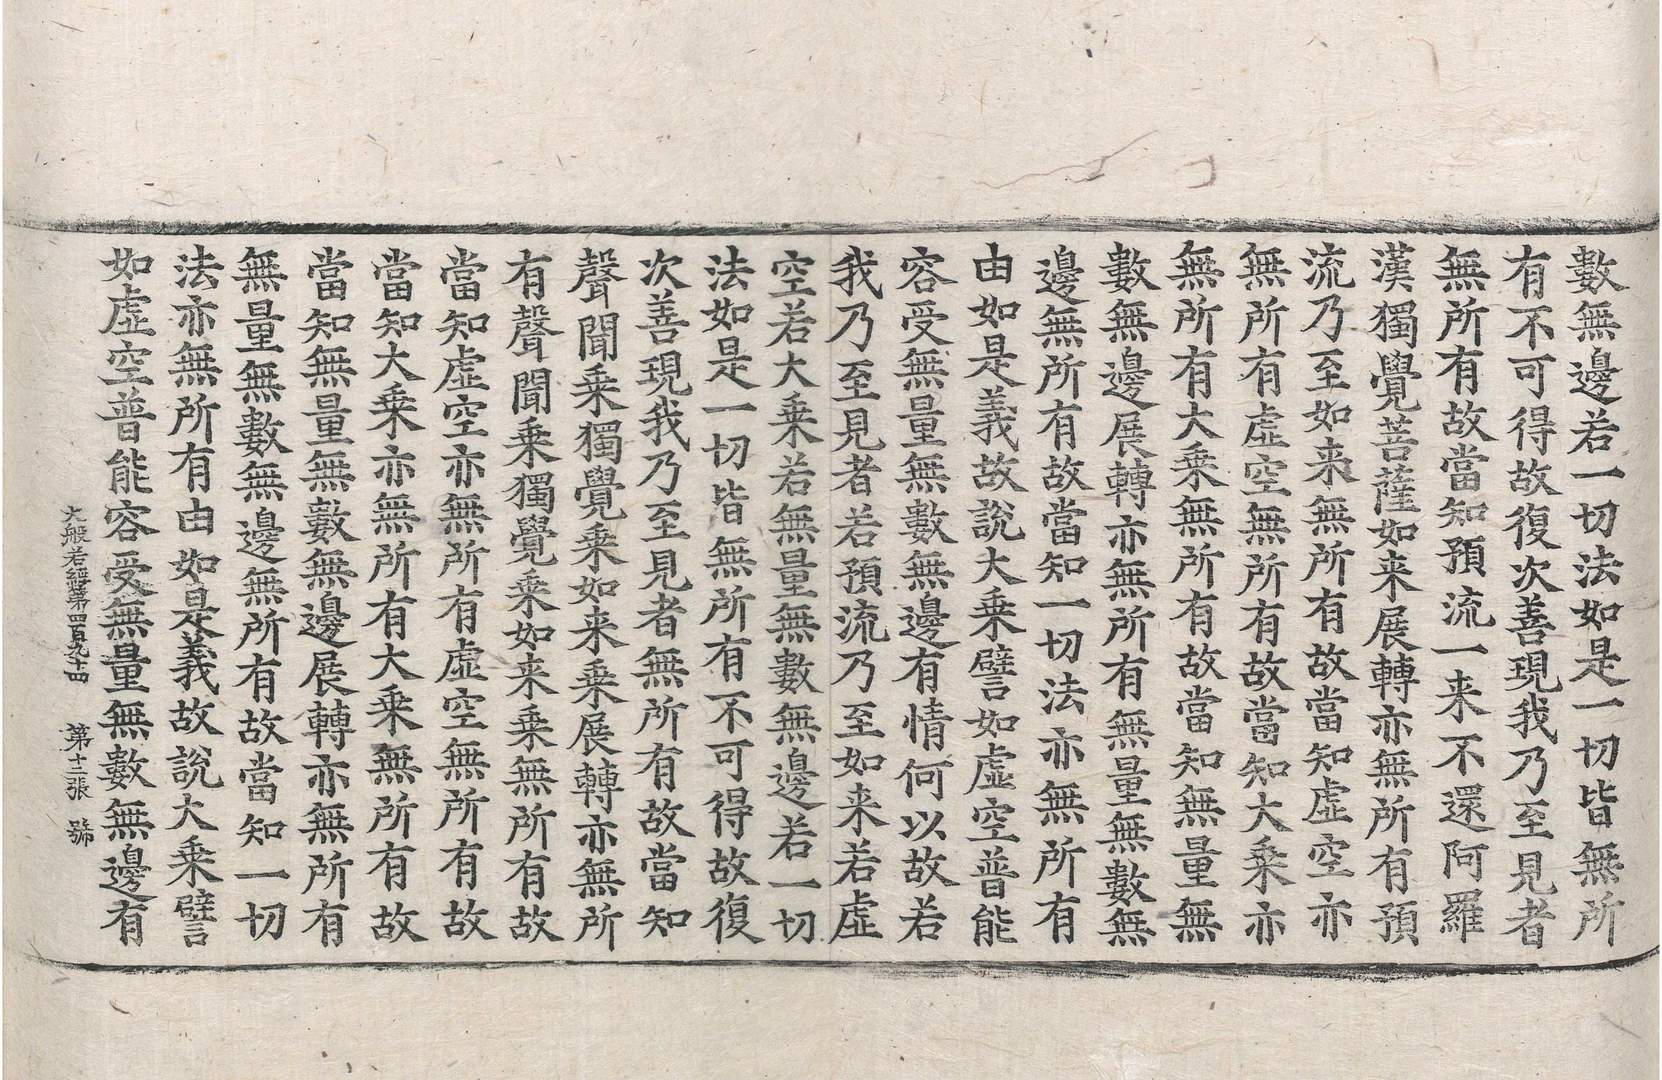 數無邊若一切法如是一切皆無所
有不可得故復次善現我乃至見者
無所有故當知預流一来不還阿羅
漢獨覺菩薩如来展轉亦無所有預
流乃至如来無所有故當知虛空亦
無所有虛空無所有故當知大乘亦
無所有大乘無所有故當知無量無
數無邊展轉亦無所有無量無數無
邊無所有故當知一切法亦無所有
由如是義故說大乘譬如虛空普能
容受無量無數無邊有情何以故若
我乃至見者若預流乃至如来若虛
空若大乘若無量無數無邊若一切
法如是一切皆無所有不可得故復
次善現我乃至見者無所有故當知
聲聞乘獨覺乘如来乘展轉亦無所
有聲聞乘獨覺乘如来乘無所有故
當知虛空亦無所有虛空無所有故
當知大乘亦無所有大乘無所有故
當知無量無數無邊展轉亦無所有
無量無數無邊無所有故當知一切
法亦無所有由如是義故說大乘譬
如虛空普能容受無量無數無邊有
大般若經第四百九十四 第十二張 號